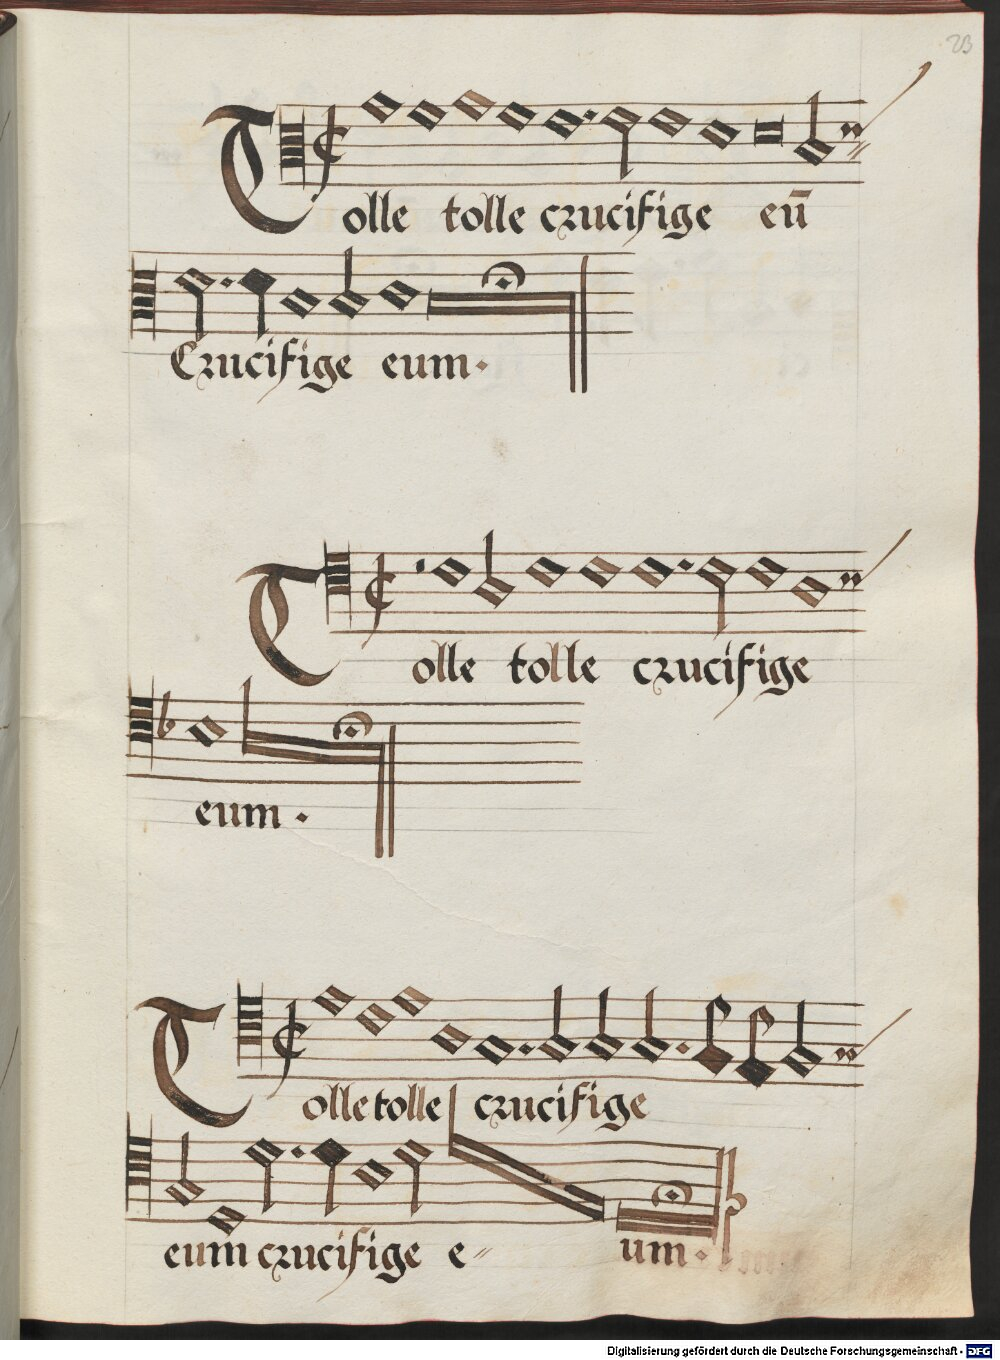 23
Tolle tolle crucifige eū
Crucifige eum.
Tolle tolle crucifige
eum.
Tolle tolle crucifige
eum crucifige e=um.
Digitalisierung gefördert durch die Deutsche Forschungsgemeinschaft - DFG